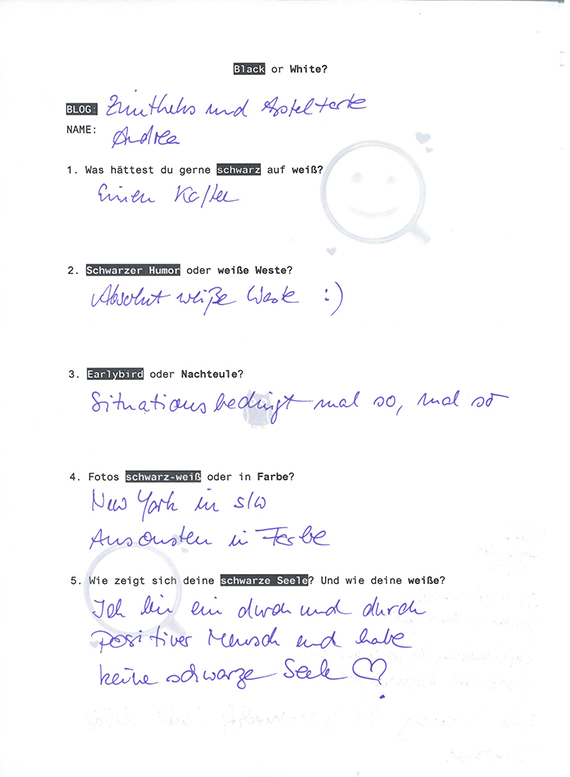 Black or White?
BLOG: Zimtkeks und Apfeltarte
NAME: Andrea
1. Was hättest du gerne schwarz auf weiß?
Einen Kaffee
2. Schwarzer Humor oder weiße Weste?
Absolut weiße Weste :)
3. Earlybird oder Nachteule?
Situationsbedingt mal so, mal so
4. Fotos schwarz-weiß oder in Farbe?
New York in s/w
Ansonsten in Farbe
5. Wie zeigt sich deine schwarze Seele? Und wie deine weiße?
Ich bin ein durch und durch
positiver Mensch und habe
keine schwarze Seele ♡